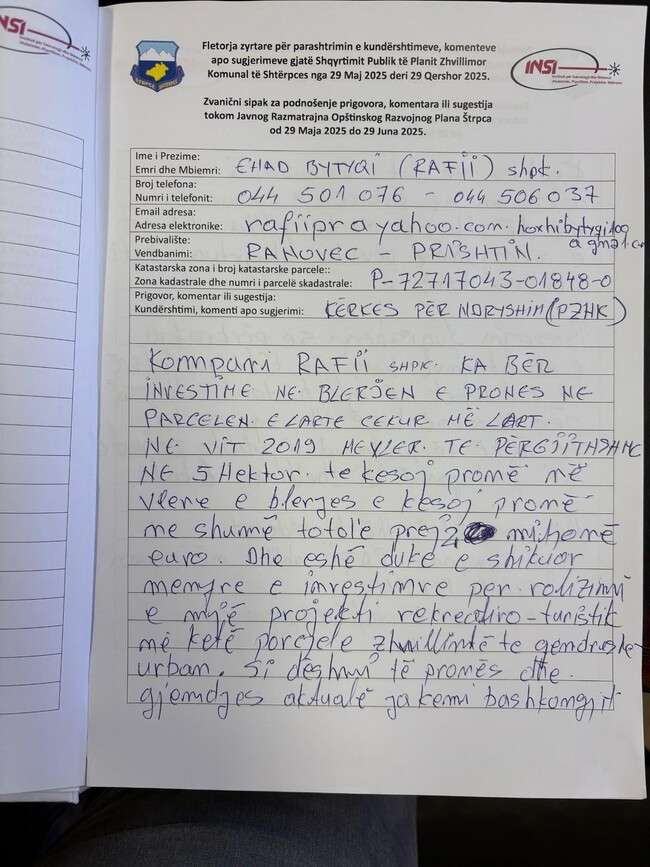 INSI
Fletorja zyrtare për parashtrimin e kundërshtimeve, komenteve
apo sugjerimeve gjatë Shqyrtimit Publik të Planit Zhvillimor
Komunal të Shtërpces nga 29 Maj 2025 deri 29 Qershor 2025.
INSI
Zvanični sipak za podnošenje prigovora, komentara ili sugestija
tokom Javnog Razmatrajna Opštinskog Razvojnog Plana Štrpca
od 29 Maja 2025 do 29 Juna 2025.
Ime i Prezime:
Emri dhe Mbiemri: EHAD BYTYQI (RAFII) shpk.
Broj telefona:
Numri i telefonit: 044 501 076 - 044 506 037
Email adresa:
Adresa elektronike: rafiipr a yahoo.com.
Prebivalište:
Vendbanimi: RANOVEC - PRISHTIN.
Katastarska zona i broj katastarske parcele::
Zona kadastrale dhe numri i parcelë skadastrale: P-72717043-01848-0
Prigovor, komentar ili sugestija:
Kundërshtimi, komenti apo sugjerimi: KËRKES PËR NDRYSHIM (PZHK)
Kompani RAFII SHPK. KA BËR
INVESTIME NE BLERJEN E PRONES NE
PARCELEN E LARTE CEKUR MË LART.
NE VIT 2019 TE PËRGJITHSHME
NE 5 Hektor. te kesoj pronë në
vlere e blerjes e kesoj pronë
me shumë totol'e prej 2 milionë
euro. Dhe eshë duke e shikuar
menyre e investimve per rolizimi
e një projekti rekreativo-turistik
në ketë porcjele zhvillimtë te qendrushe
urban. Si dëshmi të pronës dhe
gjendjes aktualë ja kemi bashkongjit